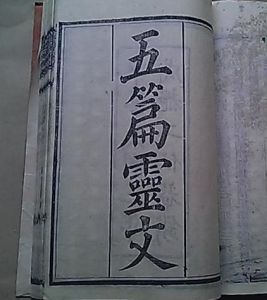 五篇靈文